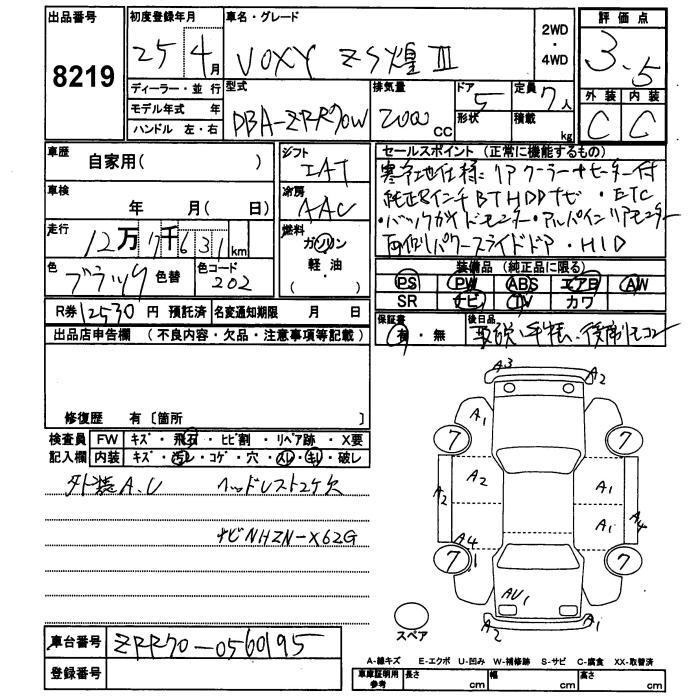 出品番号 初度登録年月 車名・グレード 2WD・4WD 評価点
8219 25 4月 VOXY ZS煌Ⅲ 3.5
ディーラー・並行 型式 排気量 ドア 5 定員 7人 外装 内装
モデル年式 年 DBA-ZRR70W 2000CC 形状 積載 kg C C
ハンドル 左・右
車歴 自家用( ) シフト IAT セールスポイント (正常に機能するもの)
寒冷地仕様・リアクーラーヒーター付
車検 年 月( 日) 冷房 AAC 純正8インチBTHDDナビ・ETC
走行 12万7千631km 燃料 ガソリン・軽油・ ・バックガイドモニター・アルパインリアモニター
両側パワースライドドア・HID
色 ブラック 色替 色コード 202 装備品 (純正品に限る)
PS PW ABS エアB AW
SR ナビ TV カワ
R券 12530円 預託済 名変通知期限 月 日 保証書 有・無 後日品 取説、手帳、後席リモコン
出品店申告欄 (不良内容・欠品・注意事項等記載)
修復歴 有〔箇所 〕
検査員 FW キズ・飛石・ヒビ割・リペア跡・X要
記入欄 内装 キズ・汚レ・コゲ・穴・スレ・キレ・破レ
外装A.U ヘッドレスト2ケ欠
ナビNHZN-X62G
A3 A2
A1
7 7
A2 A2 A1
A1 A4
A4
7 1 7
AU1
A2 A1
スペア
車台番号 ZRR70-0560195
登録番号
A-線キズ E-エクボ U-凹み W-補修跡 S-サビ C-腐食 XX-取替済
車庫証明用参考 長さ cm 幅 cm 高さ cm